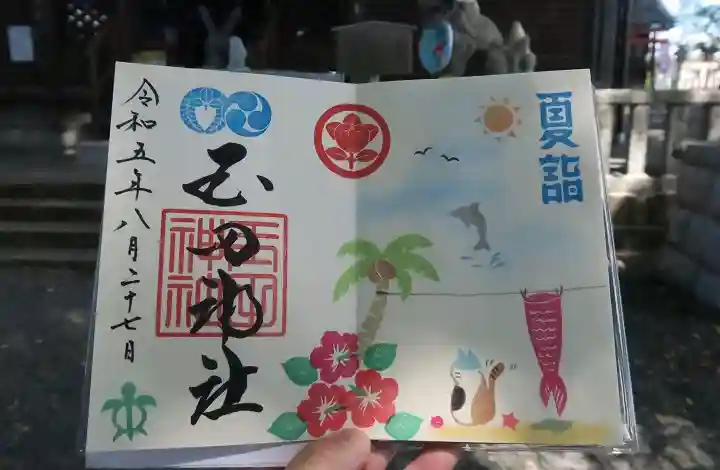 夏詣
玉田神社
玉田神社
令和五年八月二十七日